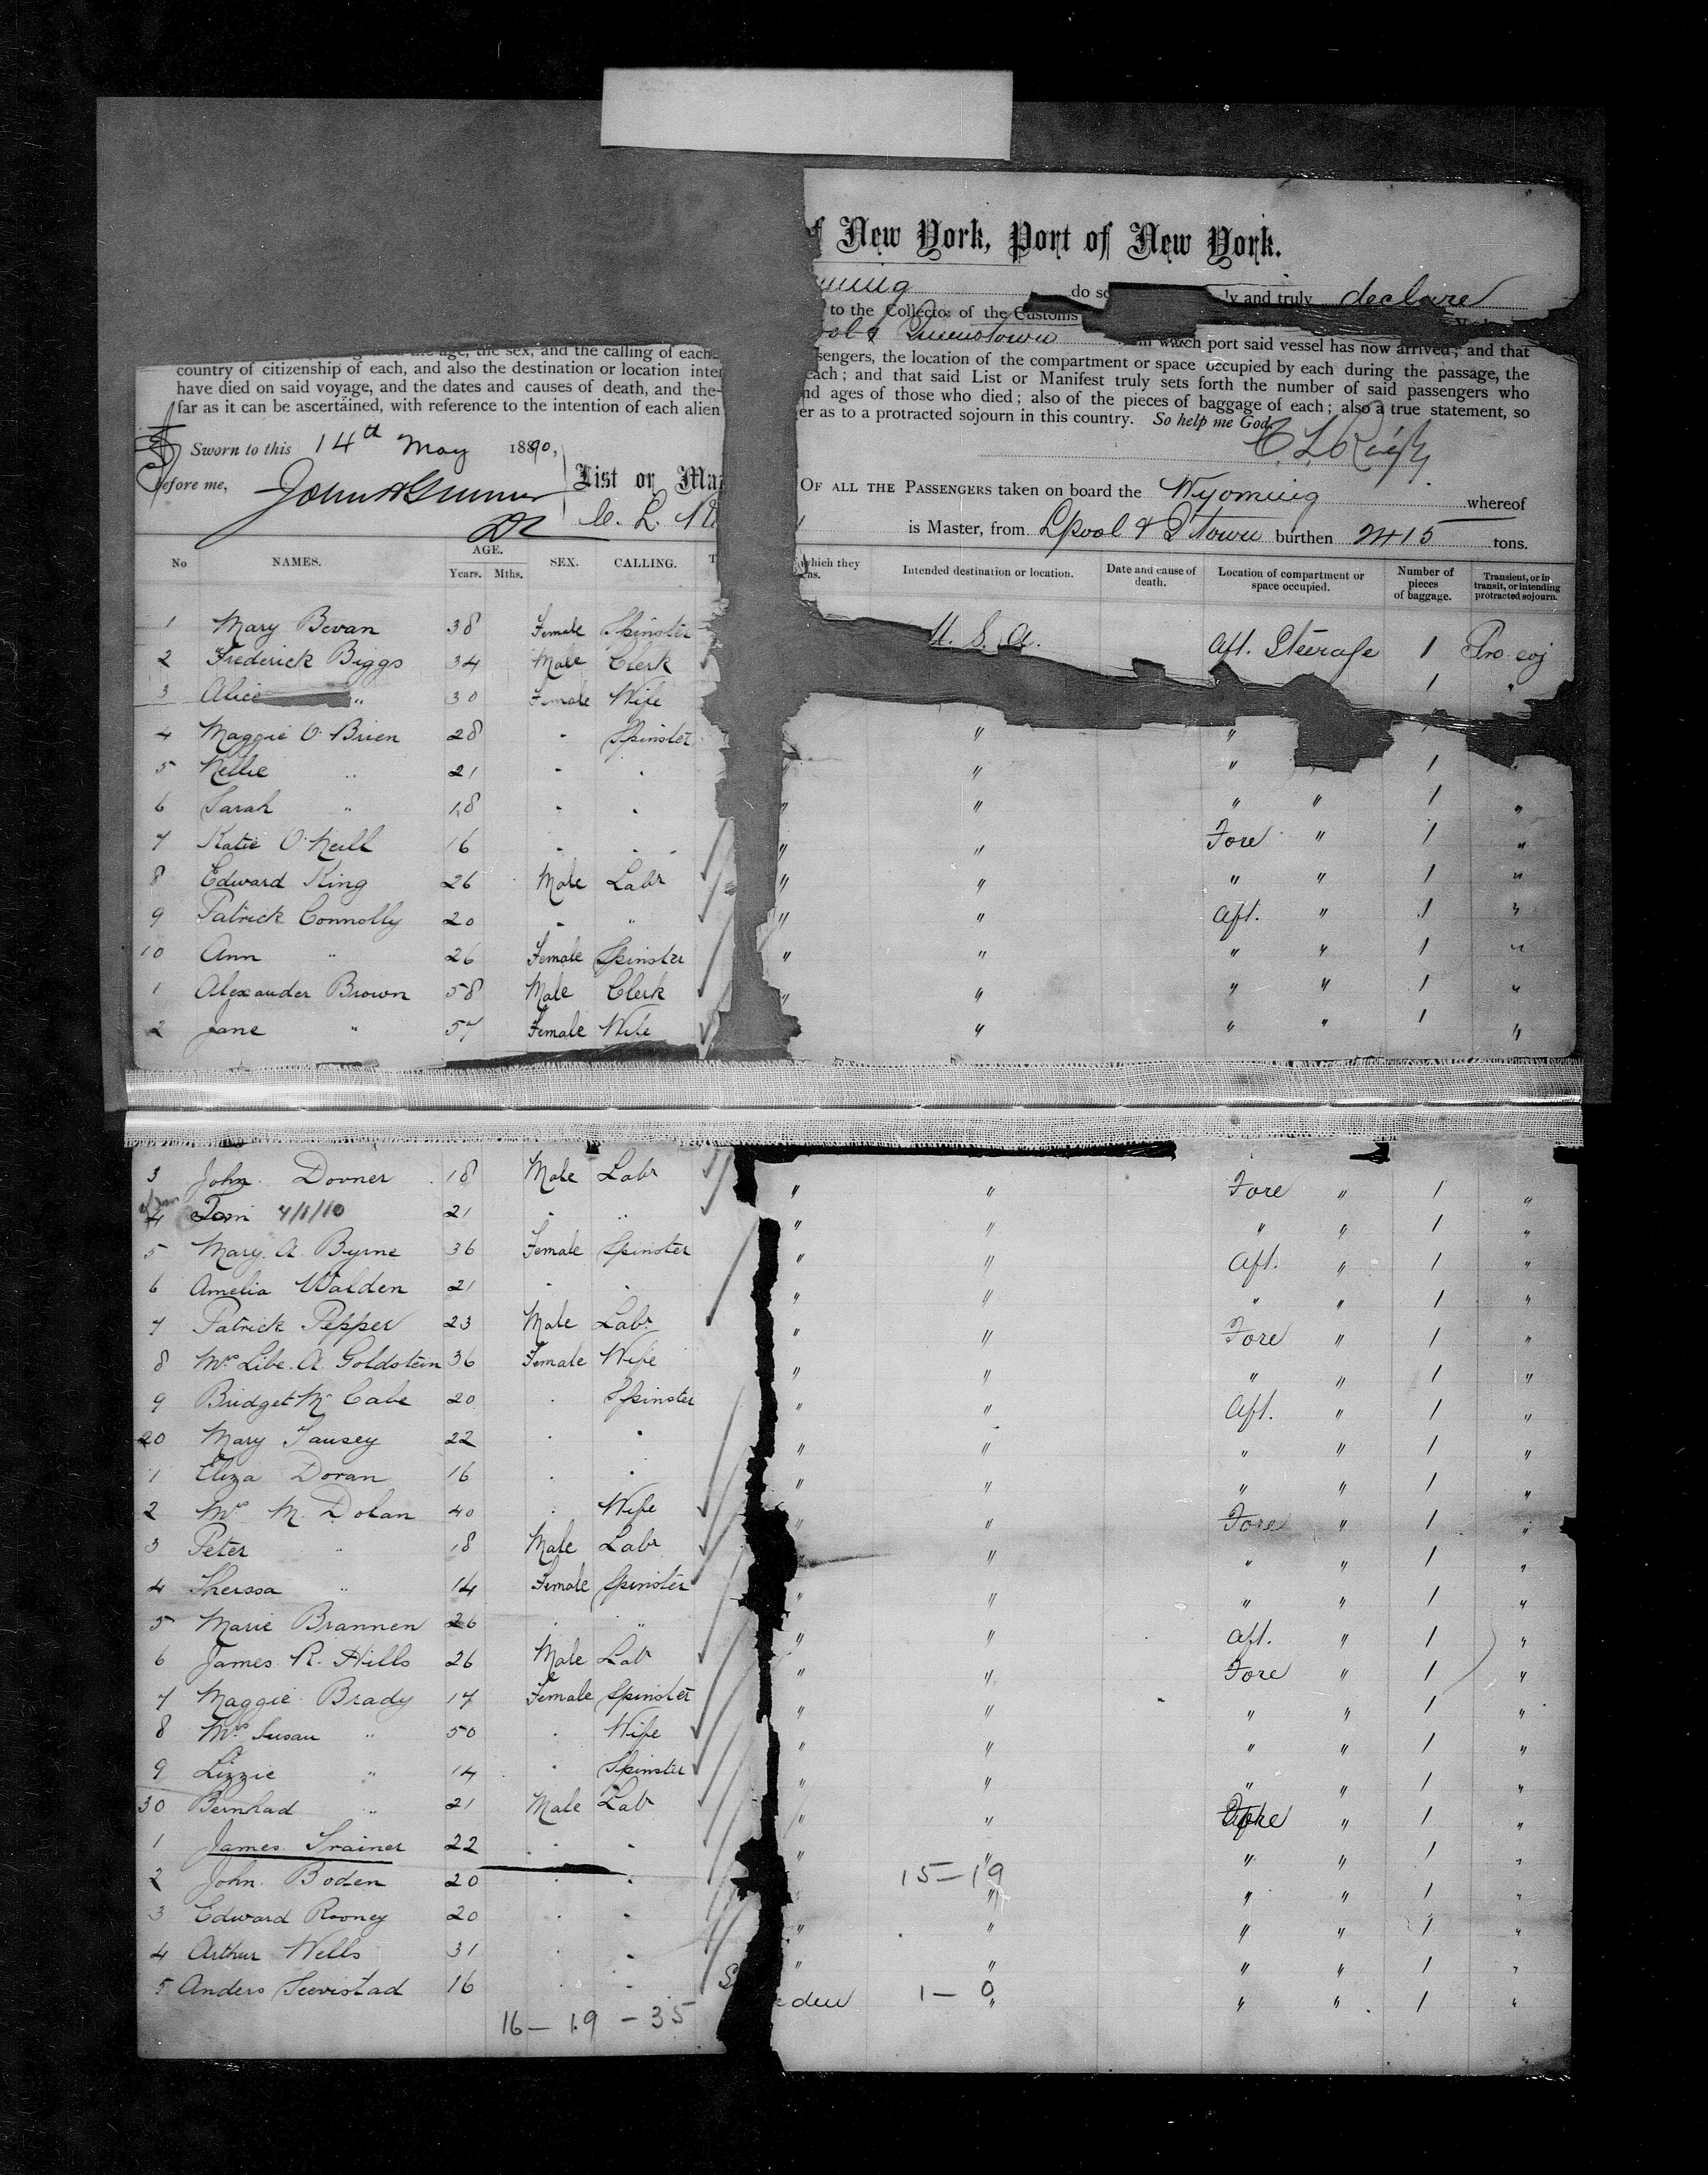 of New York, Port of New York.
do so ly and truly declare
to the Collector of the Customs
ool & Queenstown which port said vessel has now arrived; and that
age, the sex, and the calling of each sengers, the location of the compartment or space occupied by each during the passage, the
country of citizenship of each, and also the destination or location inte each; and that said List or Manifest truly sets forth the number of said passengers who
have died on said voyage, and the dates and causes of death, and the nd ages of those who died; also of the pieces of baggage of each; also a true statement, so
far as it can be ascertained, with reference to the intention of each alien er as to a protracted sojourn in this country. So help me God.
Sworn to this 14th May 1890,
before me,
List or Ma OF ALL THE PASSENGERS taken on board the Wyoming whereof
C. L. is Master, from Lpool & Q Town burthen 2415 tons.
No NAMES. AGE. Years. Mths. SEX. CALLING. which they Intended destination or location. Date and cause of death. Location of compartment or space occupied. Number of pieces of baggage. Transient, or in transit, or intending protracted sojourn.
1 Mary Bevan 38 Female Spinster U. S. A. Aft. Steerage 1 Pro. soj
2 Frederick Biggs 34 Male Clerk 1 "
3 Alice " 30 Female Wife
4 Maggie O'Brien 28 " Spinster " "
5 Nellie " 21 " " " " " 1 "
6 Sarah " 18 " " " " " " 1 "
7 Katie O'Neill 16 " " " " Fore " 1 "
8 Edward King 26 Male Labr " " " " 1 "
9 Patrick Connolly 20 " " " " Aft. " 1 "
10 Ann " 26 Female Spinster " " " " 1 "
1 Alexander Brown 58 Male Clerk " " " " 1 "
2 Jane " 57 Female Wife " " " 1 "
3 John Dovner 18 Male Labr " " Fore " 1 "
4 Tom 4/1/10 21 " " " " " " 1 "
5 Mary A Byrne 36 Female Spinster " " Aft. " 1 "
6 Amelia Walden 21 " " " " " " 1 "
7 Patrick Pepper 23 Male Labr " " Fore " 1 "
8 Mrs Libe. A. Goldstein 36 Female Wife " " " " 1 "
9 Bridget McCabe 20 " Spinster " " Aft. " 1 "
20 Mary Tausey 22 " " " " " " 1 "
1 Eliza Doran 16 " " " " " " 1 "
2 Mrs M. Dolan 40 " Wife " " Fore " 1 "
3 Peter " 18 Male Labr " " " " 1 "
4 Therssa " 14 Female Spinster " " " " 1 "
5 Marie Brannen 26 " " " " Aft. " 1 "
6 James R. Hills 26 Male Labr " " Fore " 1 "
7 Maggie Brady 17 Female Spinster " " " " 1 "
8 Mrs Susan " 50 " Wife " " " " 1 "
9 Lizzie " 14 " Spinster " " " " 1 "
30 Bernhad " 21 Male Labr " " Fore " 1 "
1 James Trainer 22 " " " " " " 1 "
2 John Boden 20 " " 15-19 " " " 1 "
3 Edward Rooney 20 " " " " " " 1 "
4 Arthur Wells 31 " " " " " " 1 "
5 Anders 16 " " S eden 1 - 0 " " " 1 "
16 - 19 - 35